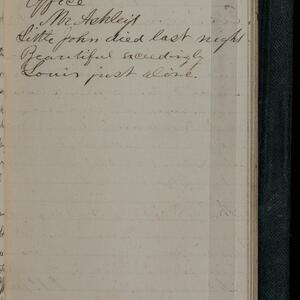 Office
Mr Ashleys
Little John died last night
Beautiful exceedingly
Louis just alive.